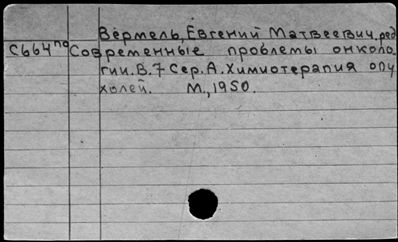 Вермель, Евгений Матвеевич, ред
С664по Современные проблемы онколо
гии. В.7 Сер.А. Химиотерапия опу
холей. М., 1950.